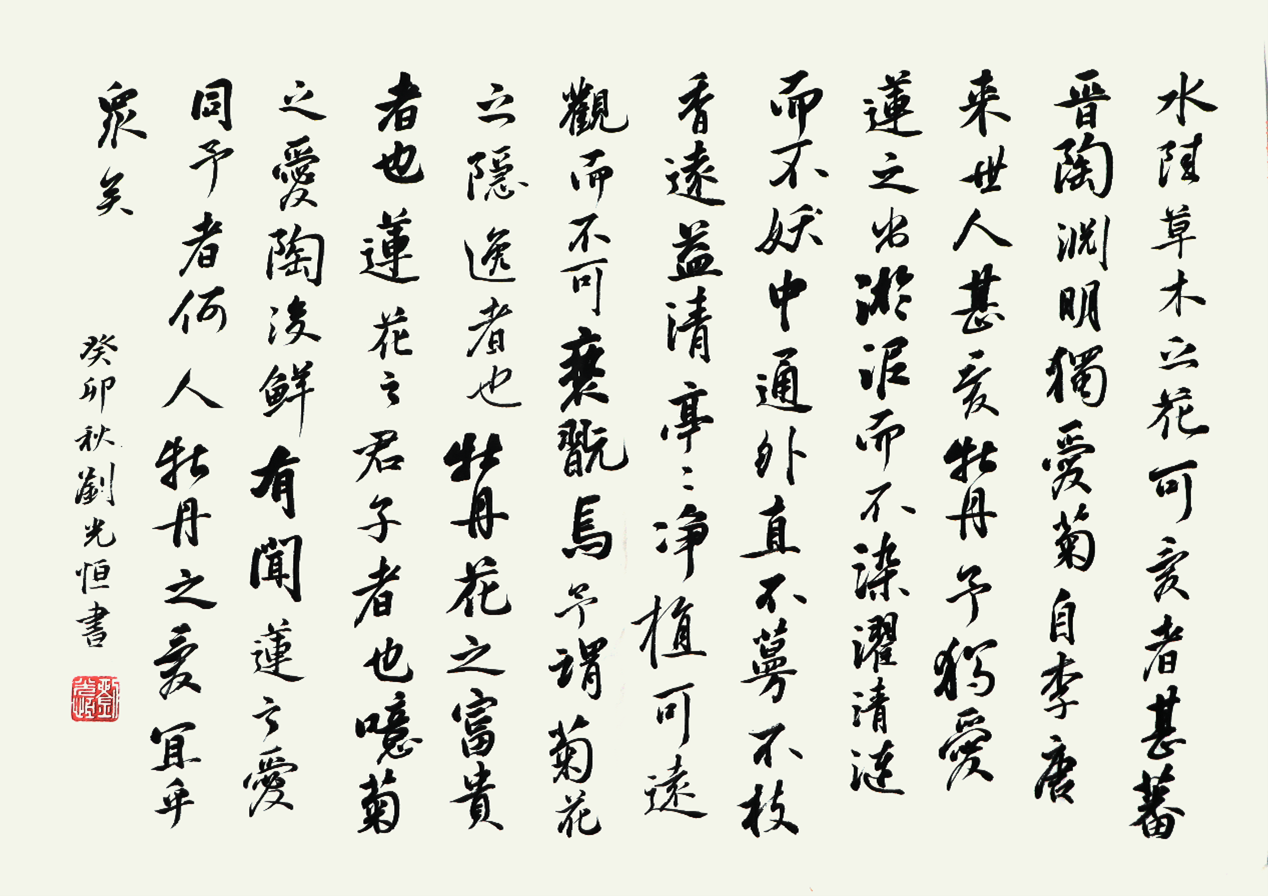 水陸草木之花可愛者甚蕃
晋陶渊明獨愛菊自李唐
来世人甚愛牡丹予独愛
蓮之出淤泥而不染濯清涟
而不妖中通外直不蔓不枝
香遠益清亭〻净植可遠
觀而不可亵翫焉予謂菊花
之隱逸者也牡丹花之富貴
者也蓮花之君子者也噫菊
之愛陶後鮮有聞蓮之愛
同予者何人牡丹之愛宜乎
衆矣
癸卯秋劉光恒書